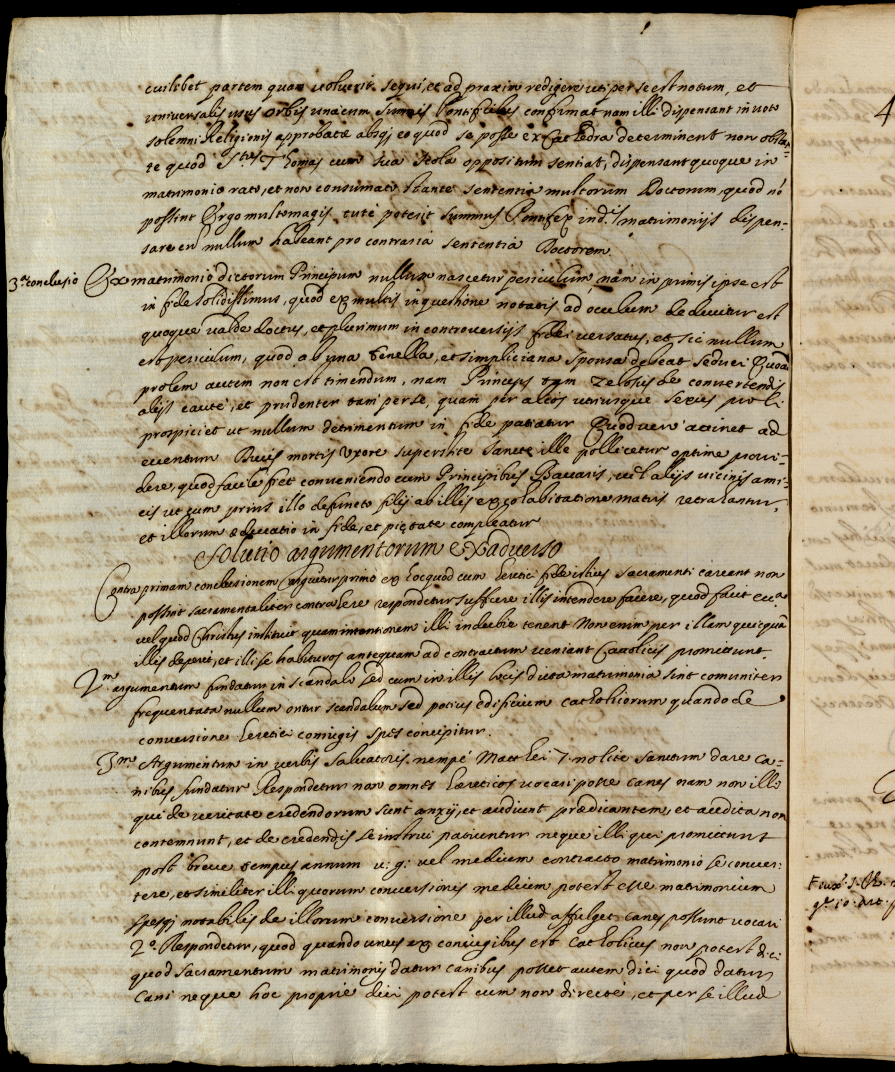 cuilibet partem quam voluerit sequi, et ad praxim redigere uti per se est notum, et
universalis usus orbis unacum Summis Pontificibus confirmat nam illi dispensant in voto
solemni Religionis approbatæ absq; eo quod se posse ex Cathedra determinent non obstan-
te quod Stus Thomas cum sua schola oppositum sentiat, dispensant quoque in
matrimonio rato, et non consumato stante sententia multorum Doctorum, quod nō
possint Ergo multomagis tuté poterit Summus Pontifex in d.is matrimonijs dispen-
sare cū nullum habeant pro contraria sententia Doctorem
3.a conclusio Ex matrimonio dictorum Principum nullum nascetur periculum nam in primis ipse est
in fide solidissimus, quod ex multis in questione notatis ad oculum deducitur est
quoque valde doctus, et plurimum in controversijs fidei versatus, et sic nullum
est periculum, quod ab una tenella, et simpliciana sponsa debeat seduci Quoad
prolem autem non est timendum, nam Princeps tam zelosus de convertendis
alijs cauté, et prudenter tam per se, quam per alios utriusque sexus proli
prospiciet ut nullum detrimentum in fide patiatur Quod vero attinet ad
eventum Ducis mortis Uxore superstite sancte ille pollicetur optime provi-
dere, quod facile fiet conveniendo cum Principibus Bavaris, vel alijs vicinis ami-
cis ut cum primis illo defuncto filij ab illis ex cohabitatione matris retrahantur,
et illorum educatio in fide, et pietate compleatur
Solutio argumentorum Ex adverso
Contra primam conclusionem arguetur primo ex hoc quod cum heretici fide istius sacramenti careant non
possint sacramentaliter contrahere respondetur sufficere illis intendere facere, quod facit ecc.a
vel quod Christus instituit quam intentionem illi indubie tenent Non enim per illam quicquā
illis deperit, et illi se habituros antequam ad contractum veniant Catolicis promittunt.
2.m argumentum fundatur in scandalo sed cum in illis locis dicta matrimonia sint comuniter
frequentata nullum oritur scandalum sed potius edificium catholicorum quando de
conversione heretici coniugis spes concipitur.
3.m Argumentum in verbis Salvatoris nempé Matthei 7. nolite sanctum dare ca-
nibus fundatur Respondetur non omnes hæreticos vocari posse canes nam non illi
qui de veritate credendorum sunt anxij, et audiunt prædicantem, et audita non
contemnunt, et de credendis se instrui patiuntur neque illi qui promittunt
post breve tempus annum v: g: vel medium contracto matrimonio se conver-
tere, et similiter illi quorum conversionis medium potest esse matrimonium
spesq; notabilis de illorum conversione per illud affulget canes possunt vocari
2.o Respondetur, quod quando unus ex coniugibus est Catholicus non potest dici
quod sacramentum matrimonij datur canibus posset autem dici quod datur
cani neque hoc proprie dici potest cum non directé, et per se illud